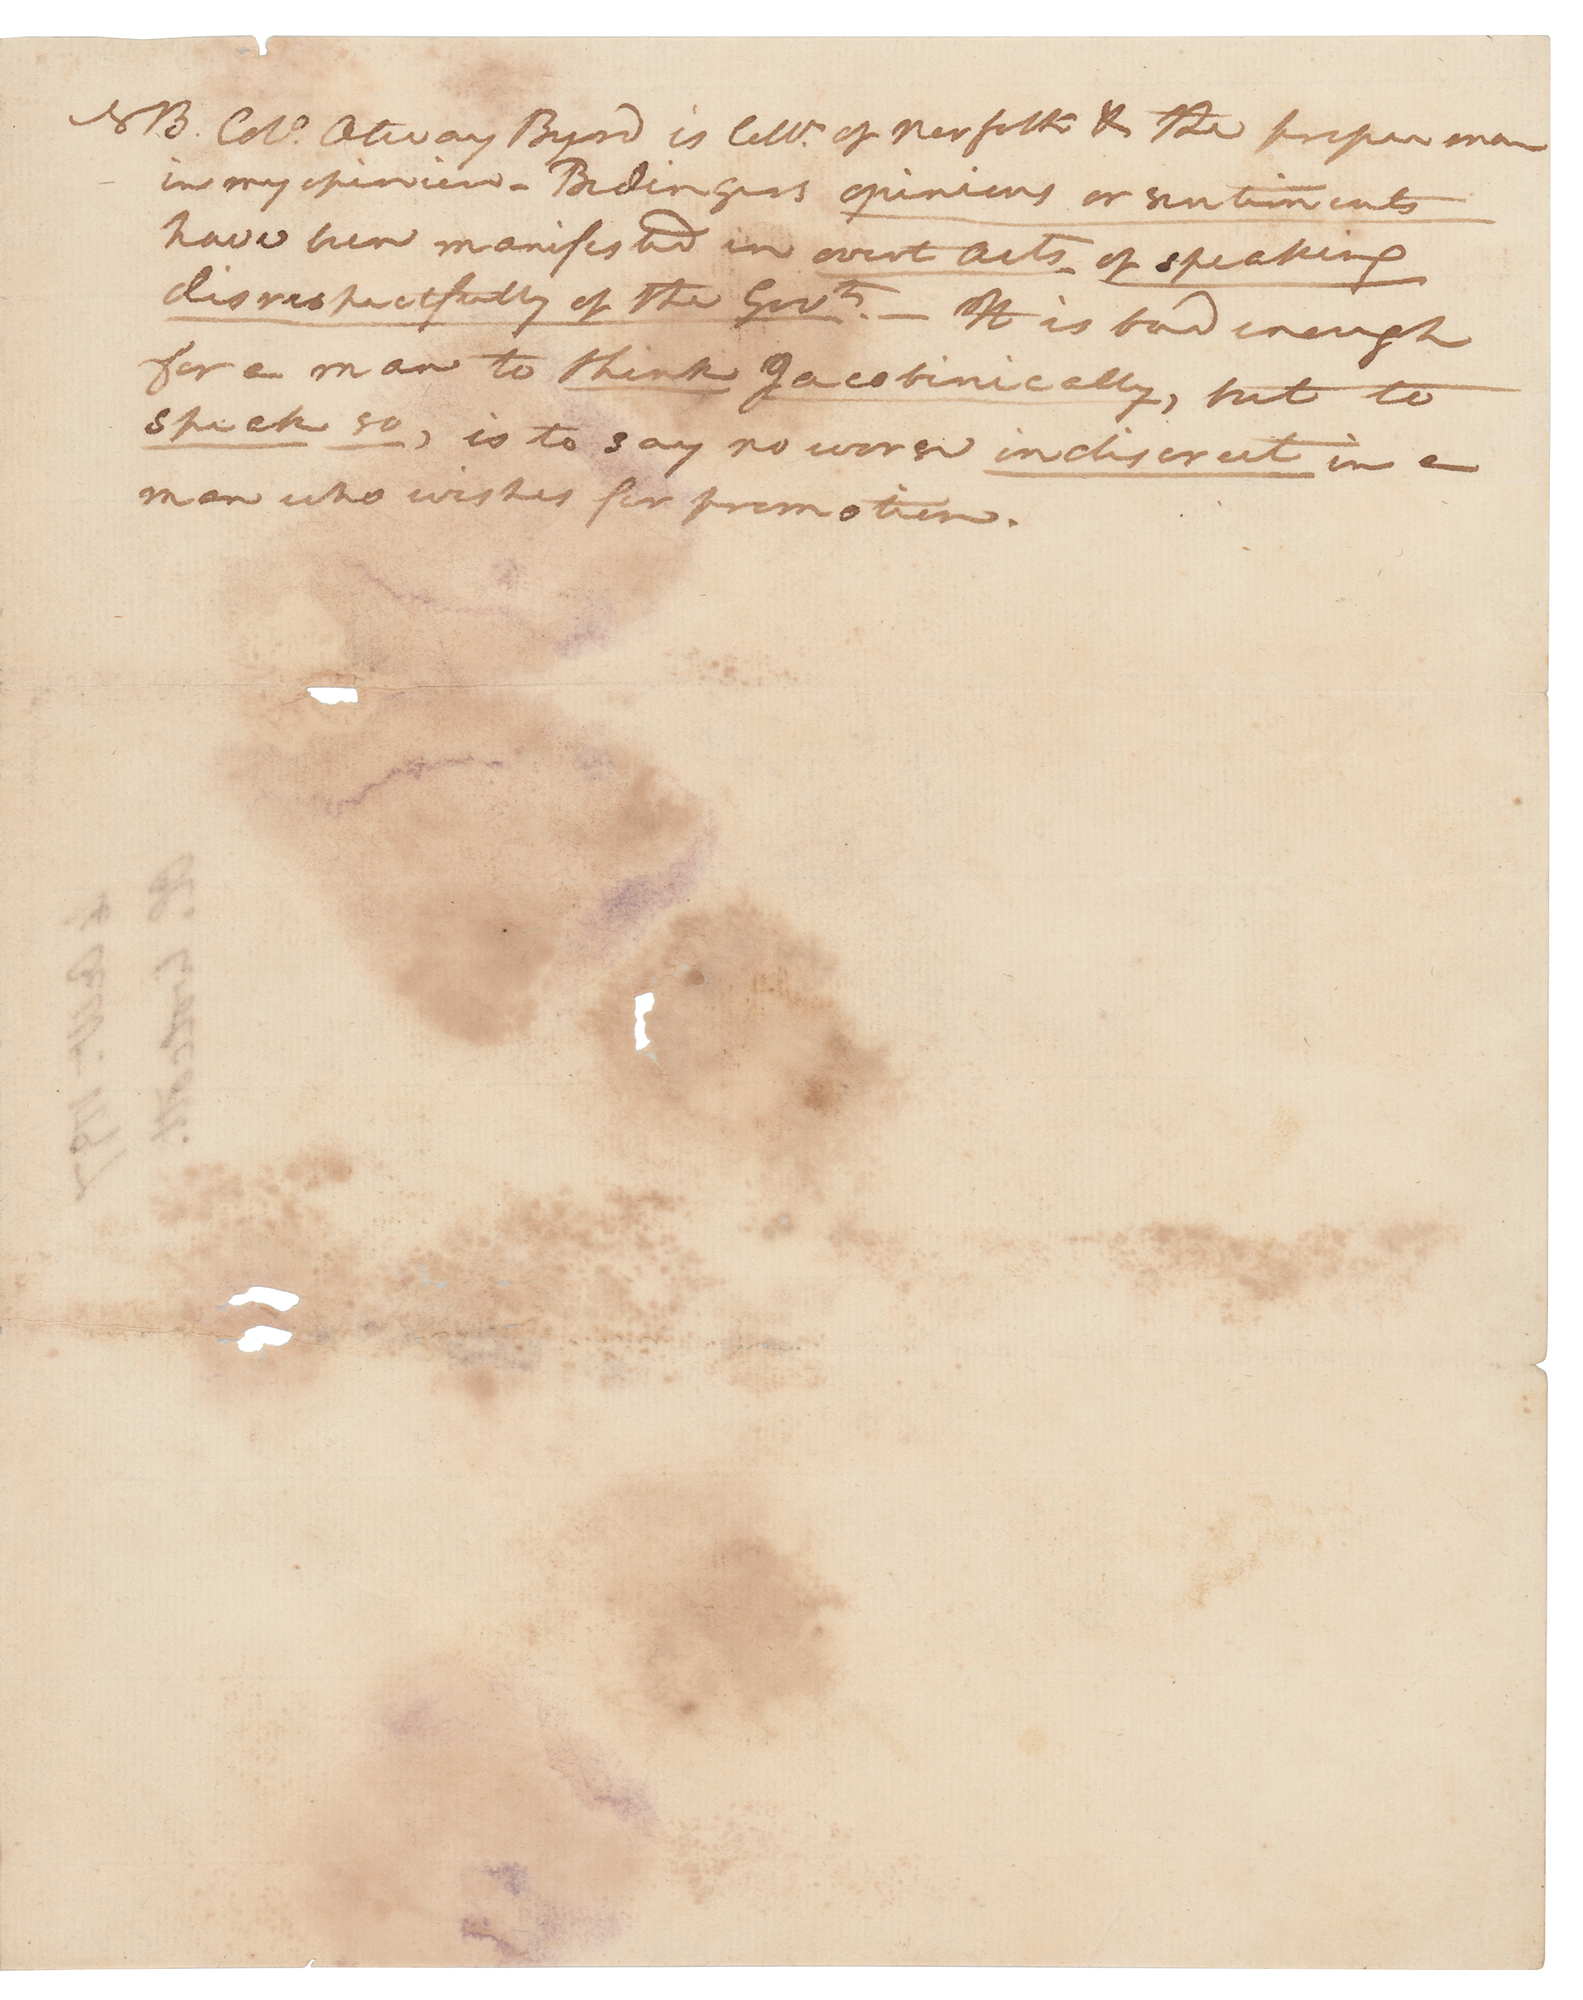 NB. Colo. Otway Byrd is Collr. of Norfolk & the proper man
in my opinion - Bedingers opinions or sentiments
have been manifested in overt acts - of speaking
disrespectfully of the Govt. — It is bad enough
for a man to think Jacobinically, but to
speak so, is to say no worse indiscreet in a
man who wishes for promotion.